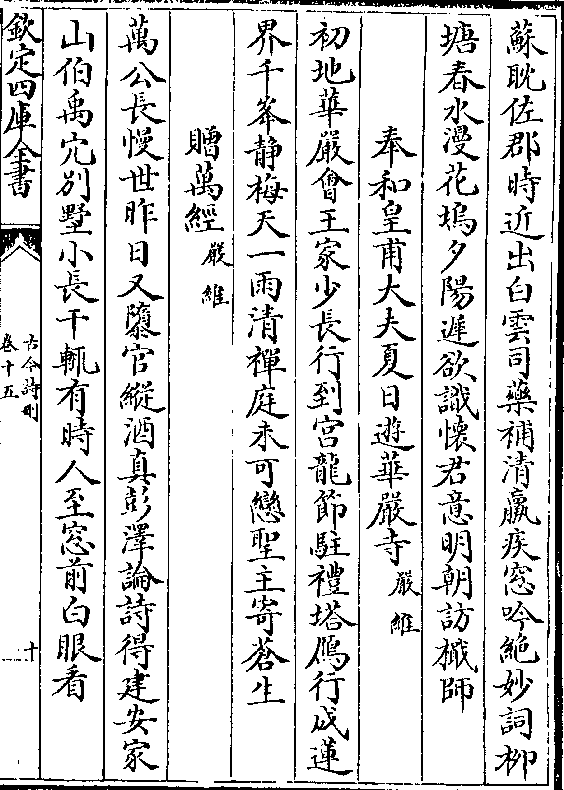 蘇耽佐郡時近出白雲司藥補清羸疾窓吟絶妙詞柳
塘春水漫花塢夕陽遲欲識懷君意明朝訪檝師
奉和皇甫大夫夏日遊華嚴寺 嚴維
初地華嚴會王家少長行到宫龍節駐禮塔鴈行成蓮
界千峯静梅天一雨清禪庭未可戀聖主寄蒼生
贈萬經 嚴維
萬公長慢世昨日又隳官縱酒真彭澤論詩得建安家
山伯禹穴别墅小長干輒有時人至窓前白眼看
欽定四庫全書
古今詩刪
卷十五
十